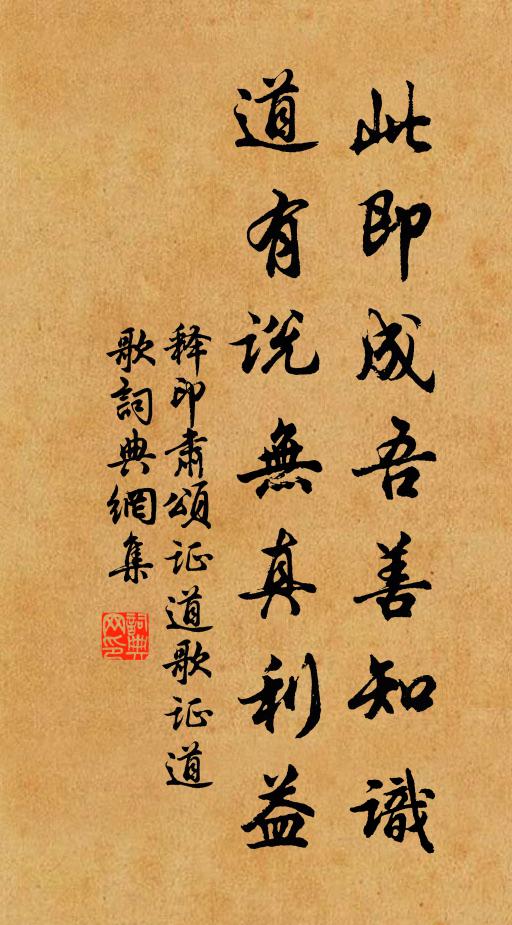 此即成吾善知識
道有说無真利益
释印肃頌证道歌证道
歌詞典網集
詞典網印